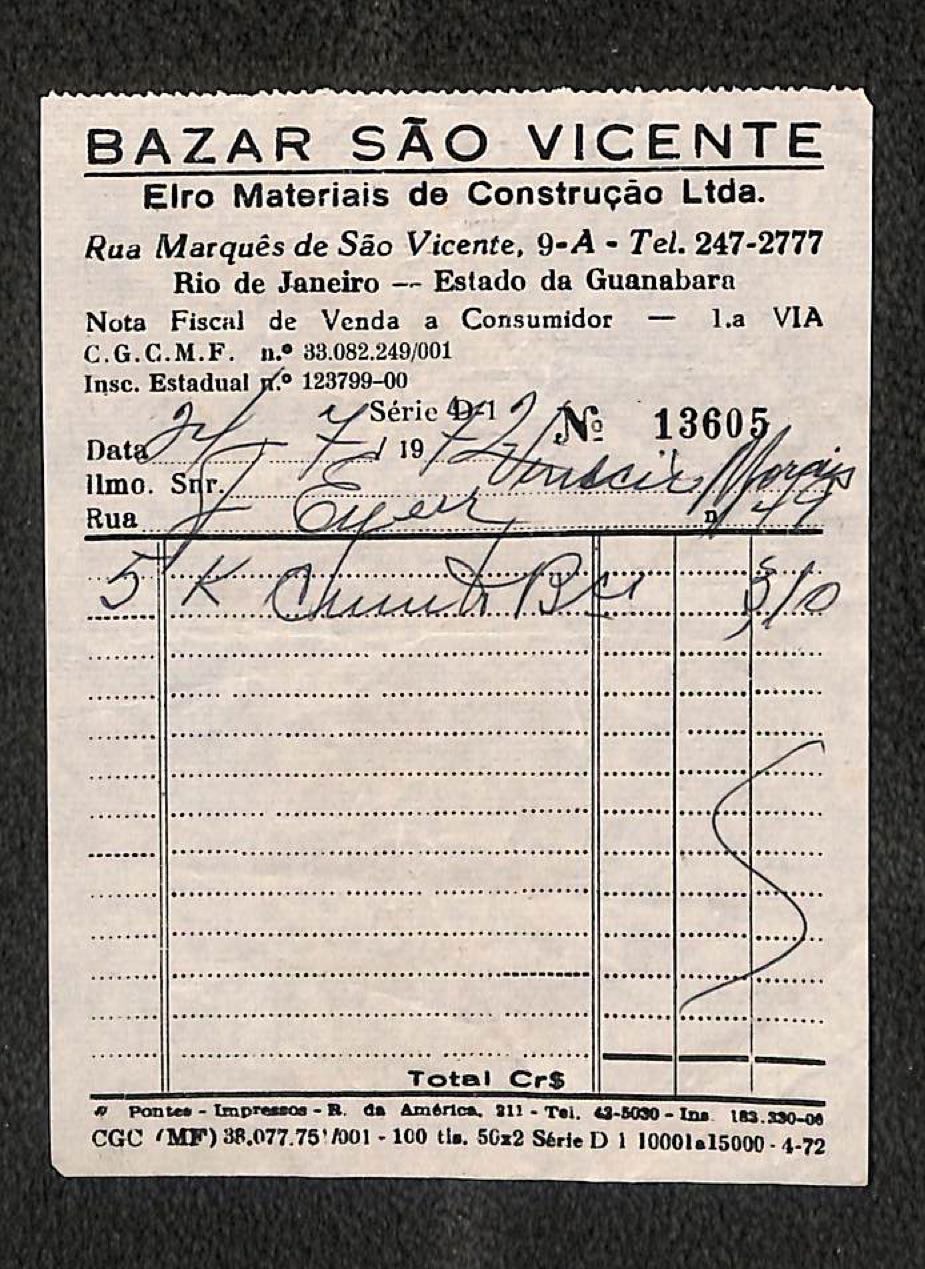 BAZAR SÃO VICENTE
Elro Materiais de Construção Ltda.
Rua Marquês de São Vicente, 9-A - Tel. 247-2777
Rio de Janeiro — Estado da Guanabara
Nota Fiscal de Venda a Consumidor — 1.a VIA
C.G.C.M.F. n.º 33.082.249/001
Insc. Estadual n.º 123799-00
Série D-1 Nº 13605
Data 7 / 1972
Ilmo. Snr. Morais
Rua n 49
5 K 3,10
Total Cr$
Pontes - Impressos - R. da América, 211 - Tel. 43-5030 - Ins. 183.330-06
CGC (MF) /001 - 100 tls. 50x2 Série D 1 10001a15000 - 4-72